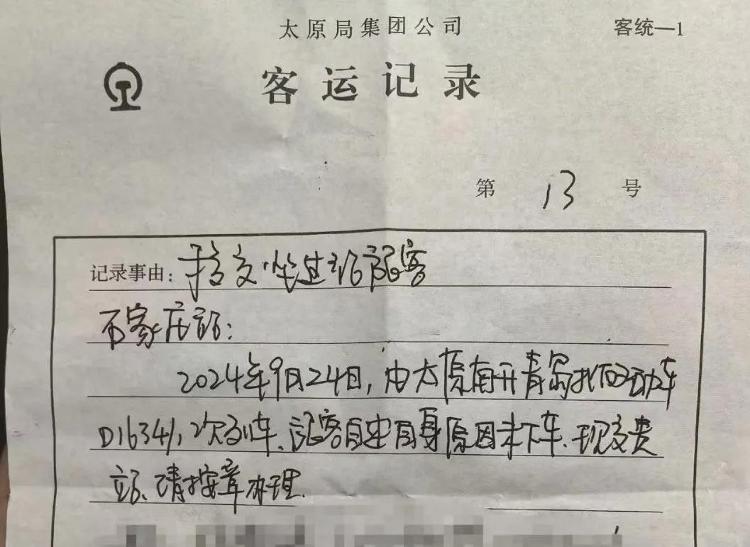 太原局集团公司
客统—1
客运记录
第 13 号
记录事由:移交坐过站旅客
石家庄站:
2024年9月24日,由太原南开青岛北的动车
D1634/1次列车、旅客自述自身原因未下车、现交贵
站、请按章办理.